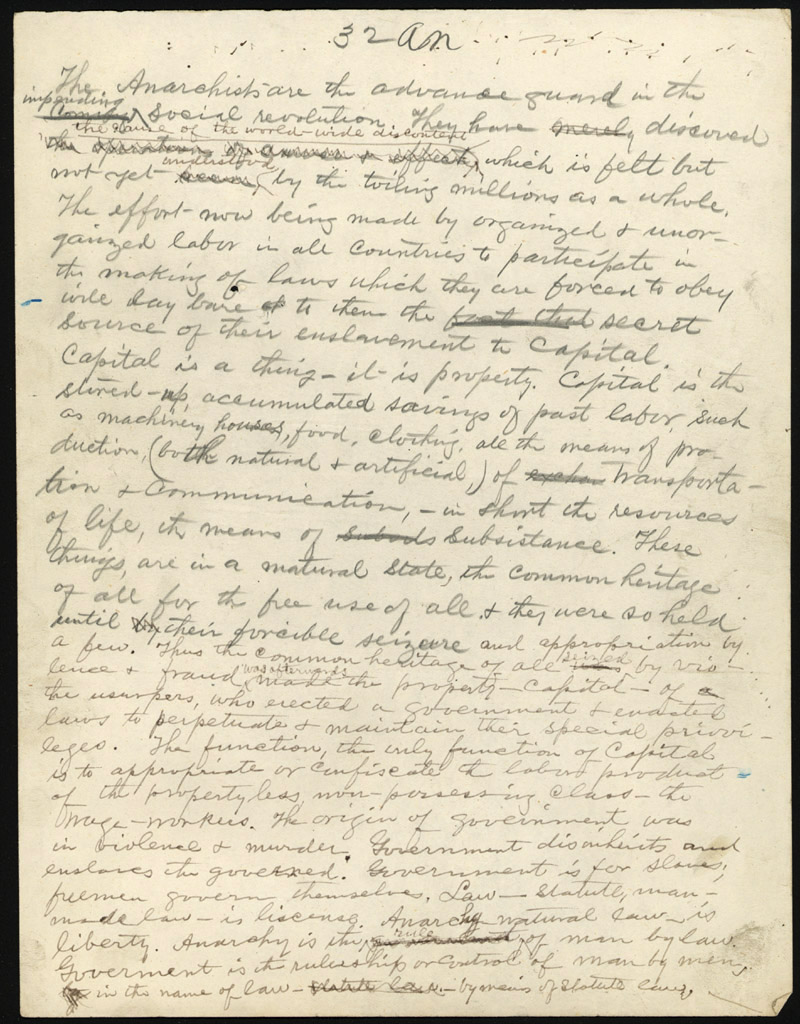 32 An
The Anarchists are the advance guard in the
impending
Coming social revolution. They have merely discovered
the cause of the world-wide discontent
the of cause & effect, which is felt but
understood
not yet seen, by the toiling millions as a whole.
The effort now being made by organized & unor-
ganized labor in all countries to participate in
the making of laws which they are forced to obey
will lay bare to them the fact that secret
source of their enslavement to Capital.
Capital is a thing – it is property. Capital is the
stored-up accumulated savings of past labor, such
as machinery, houses, food, clothing, all the means of pro-
duction, (both natural & artificial,) of transporta-
tion & Communication, – in short the resources
of life, the means of Subsistance. These
things, are in a natural State, the common heritage
of all for the free use of all, & they were so held
until their forcible seizure and appropriation by
a few. Thus the common heritage of all seized by vio-
lence & fraud, was afterwards made the property – Capital – of a
the usurpers, who erected a government & enacted
laws to perpetuate & maintain their special privi-
leges. The function, the only function of Capital
is to appropriate or confiscate the labor product
of the propertyless, non-possessing class – the
Wage-workers. The origin of government was
in violence & murder. Government disinherits and
enslaves the governed. Government is for slaves;
freemen govern themselves. Law – Statute, man-
made law – is liscense. Anarchy natural law – is
liberty. Anarchy is the rule of man by law.
Goverment is the rulership or control of man by men,
in the name of law – statute law – by means of statute law,